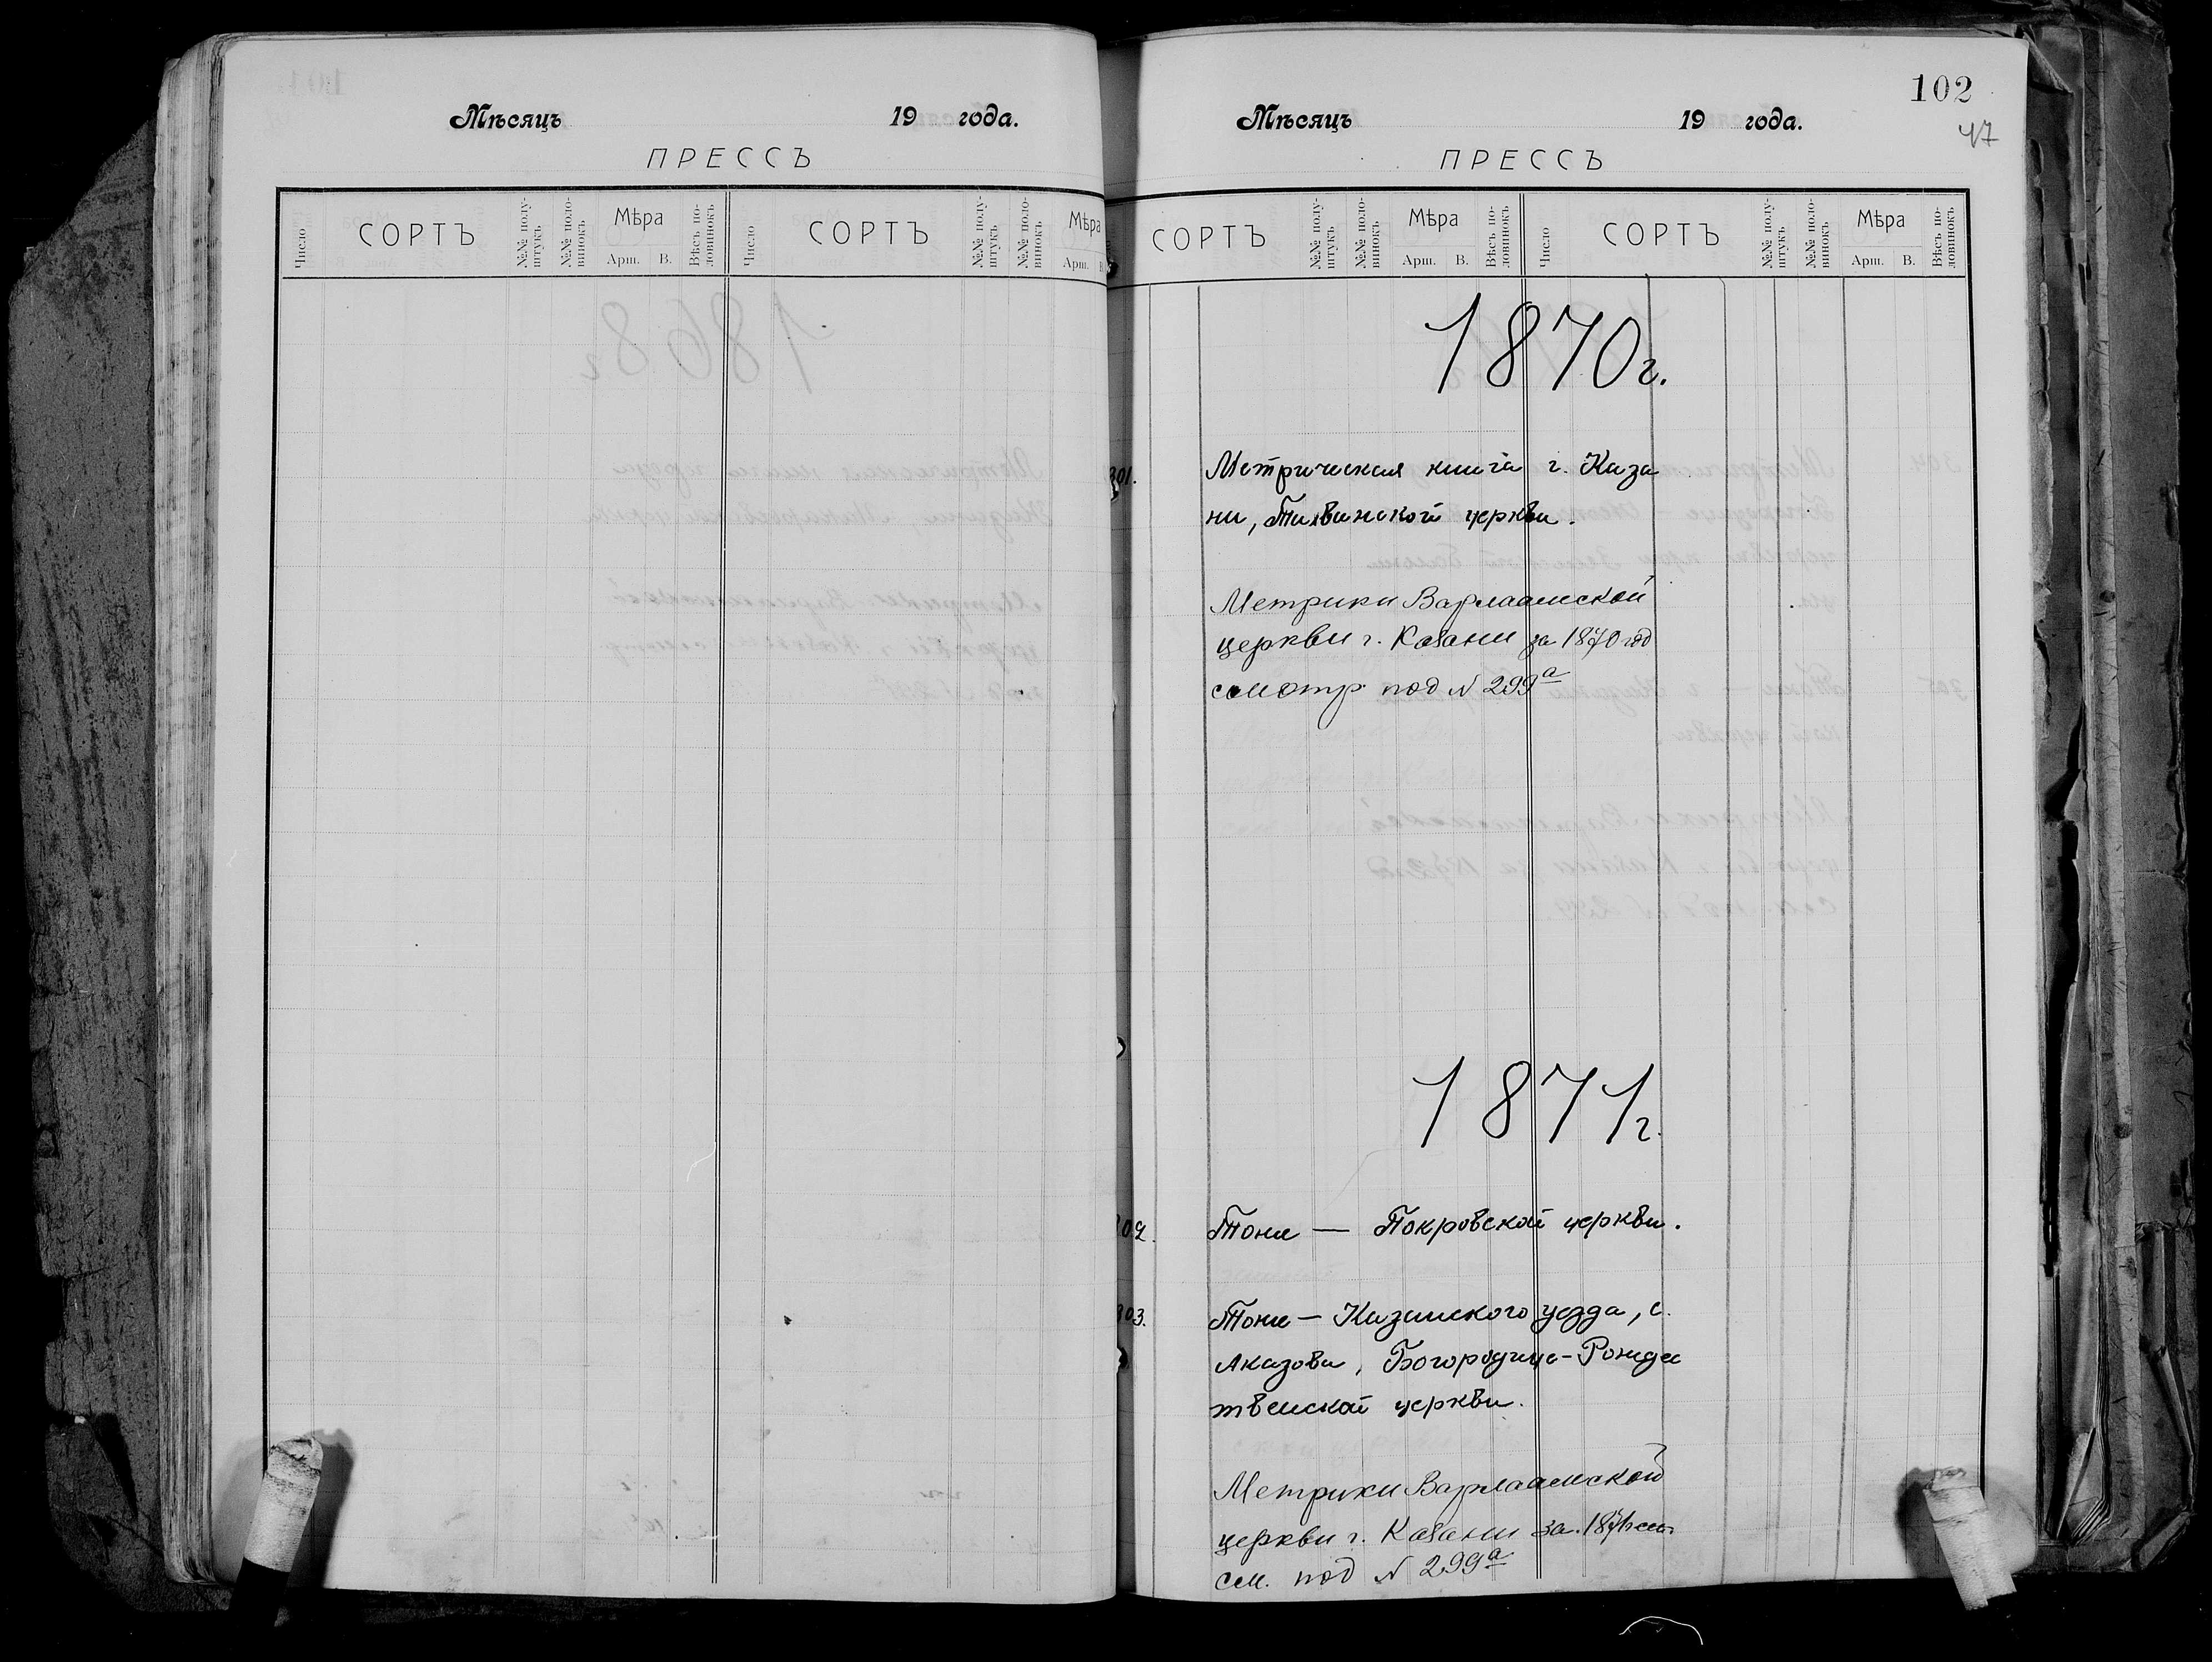 Мѣсяцъ 19 года.
ПРЕССЪ
Число СОРТЪ №№ полу-штукъ №№ поло-винокъ Мѣра Арш. В. Вѣсъ по-ловинокъ Число СОРТЪ №№ полу-штукъ №№ поло-винокъ Мѣра Арш. В.
102
47
Мѣсяцъ 19 года.
ПРЕССЪ
СОРТЪ №№ полу-штукъ №№ поло-винокъ Мѣра Арш. В. Вѣсъ по-ловинокъ Число СОРТЪ №№ полу-штукъ №№ поло-винокъ Мѣра Арш. В. Вѣсъ по-ловинокъ
1870 г.
301. Метрическая книга г. Каза
ни, церкви.
Метрики Варлаамской
церкви г. Казани за 1870 год
смотр под N 299 а
1871 г.
302. Тоже — Покровской церкви.
303. Тоже — Казанского уезда, с.
Аказова, Богородице-Рождес
твенской церкви.
Метрики Варлаамской
церкви г. Казани за 1871
см. под N 299 а